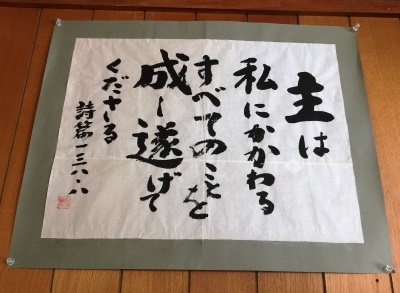 主は
私にかかわる
すべてのことを
成し遂げて
くださる
詩篇一三八・八